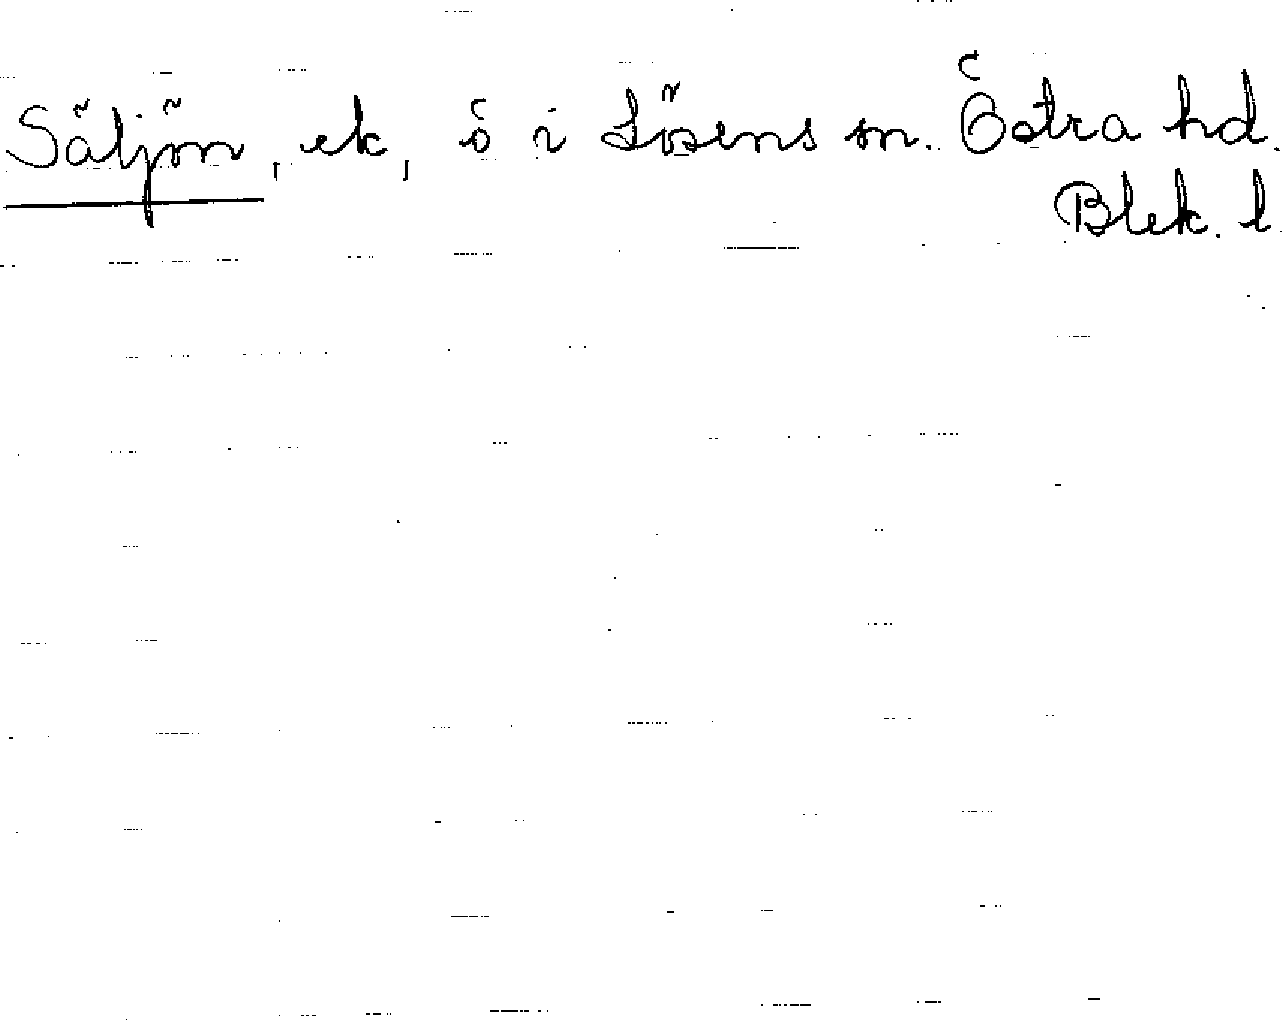 Säljön, ek, ö i Lösens sn. Östra hd.
Blek. l.